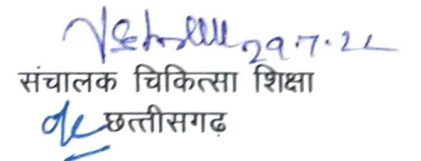 29.7.22
संचालक चिकित्सा शिक्षा
छत्तीसगढ़